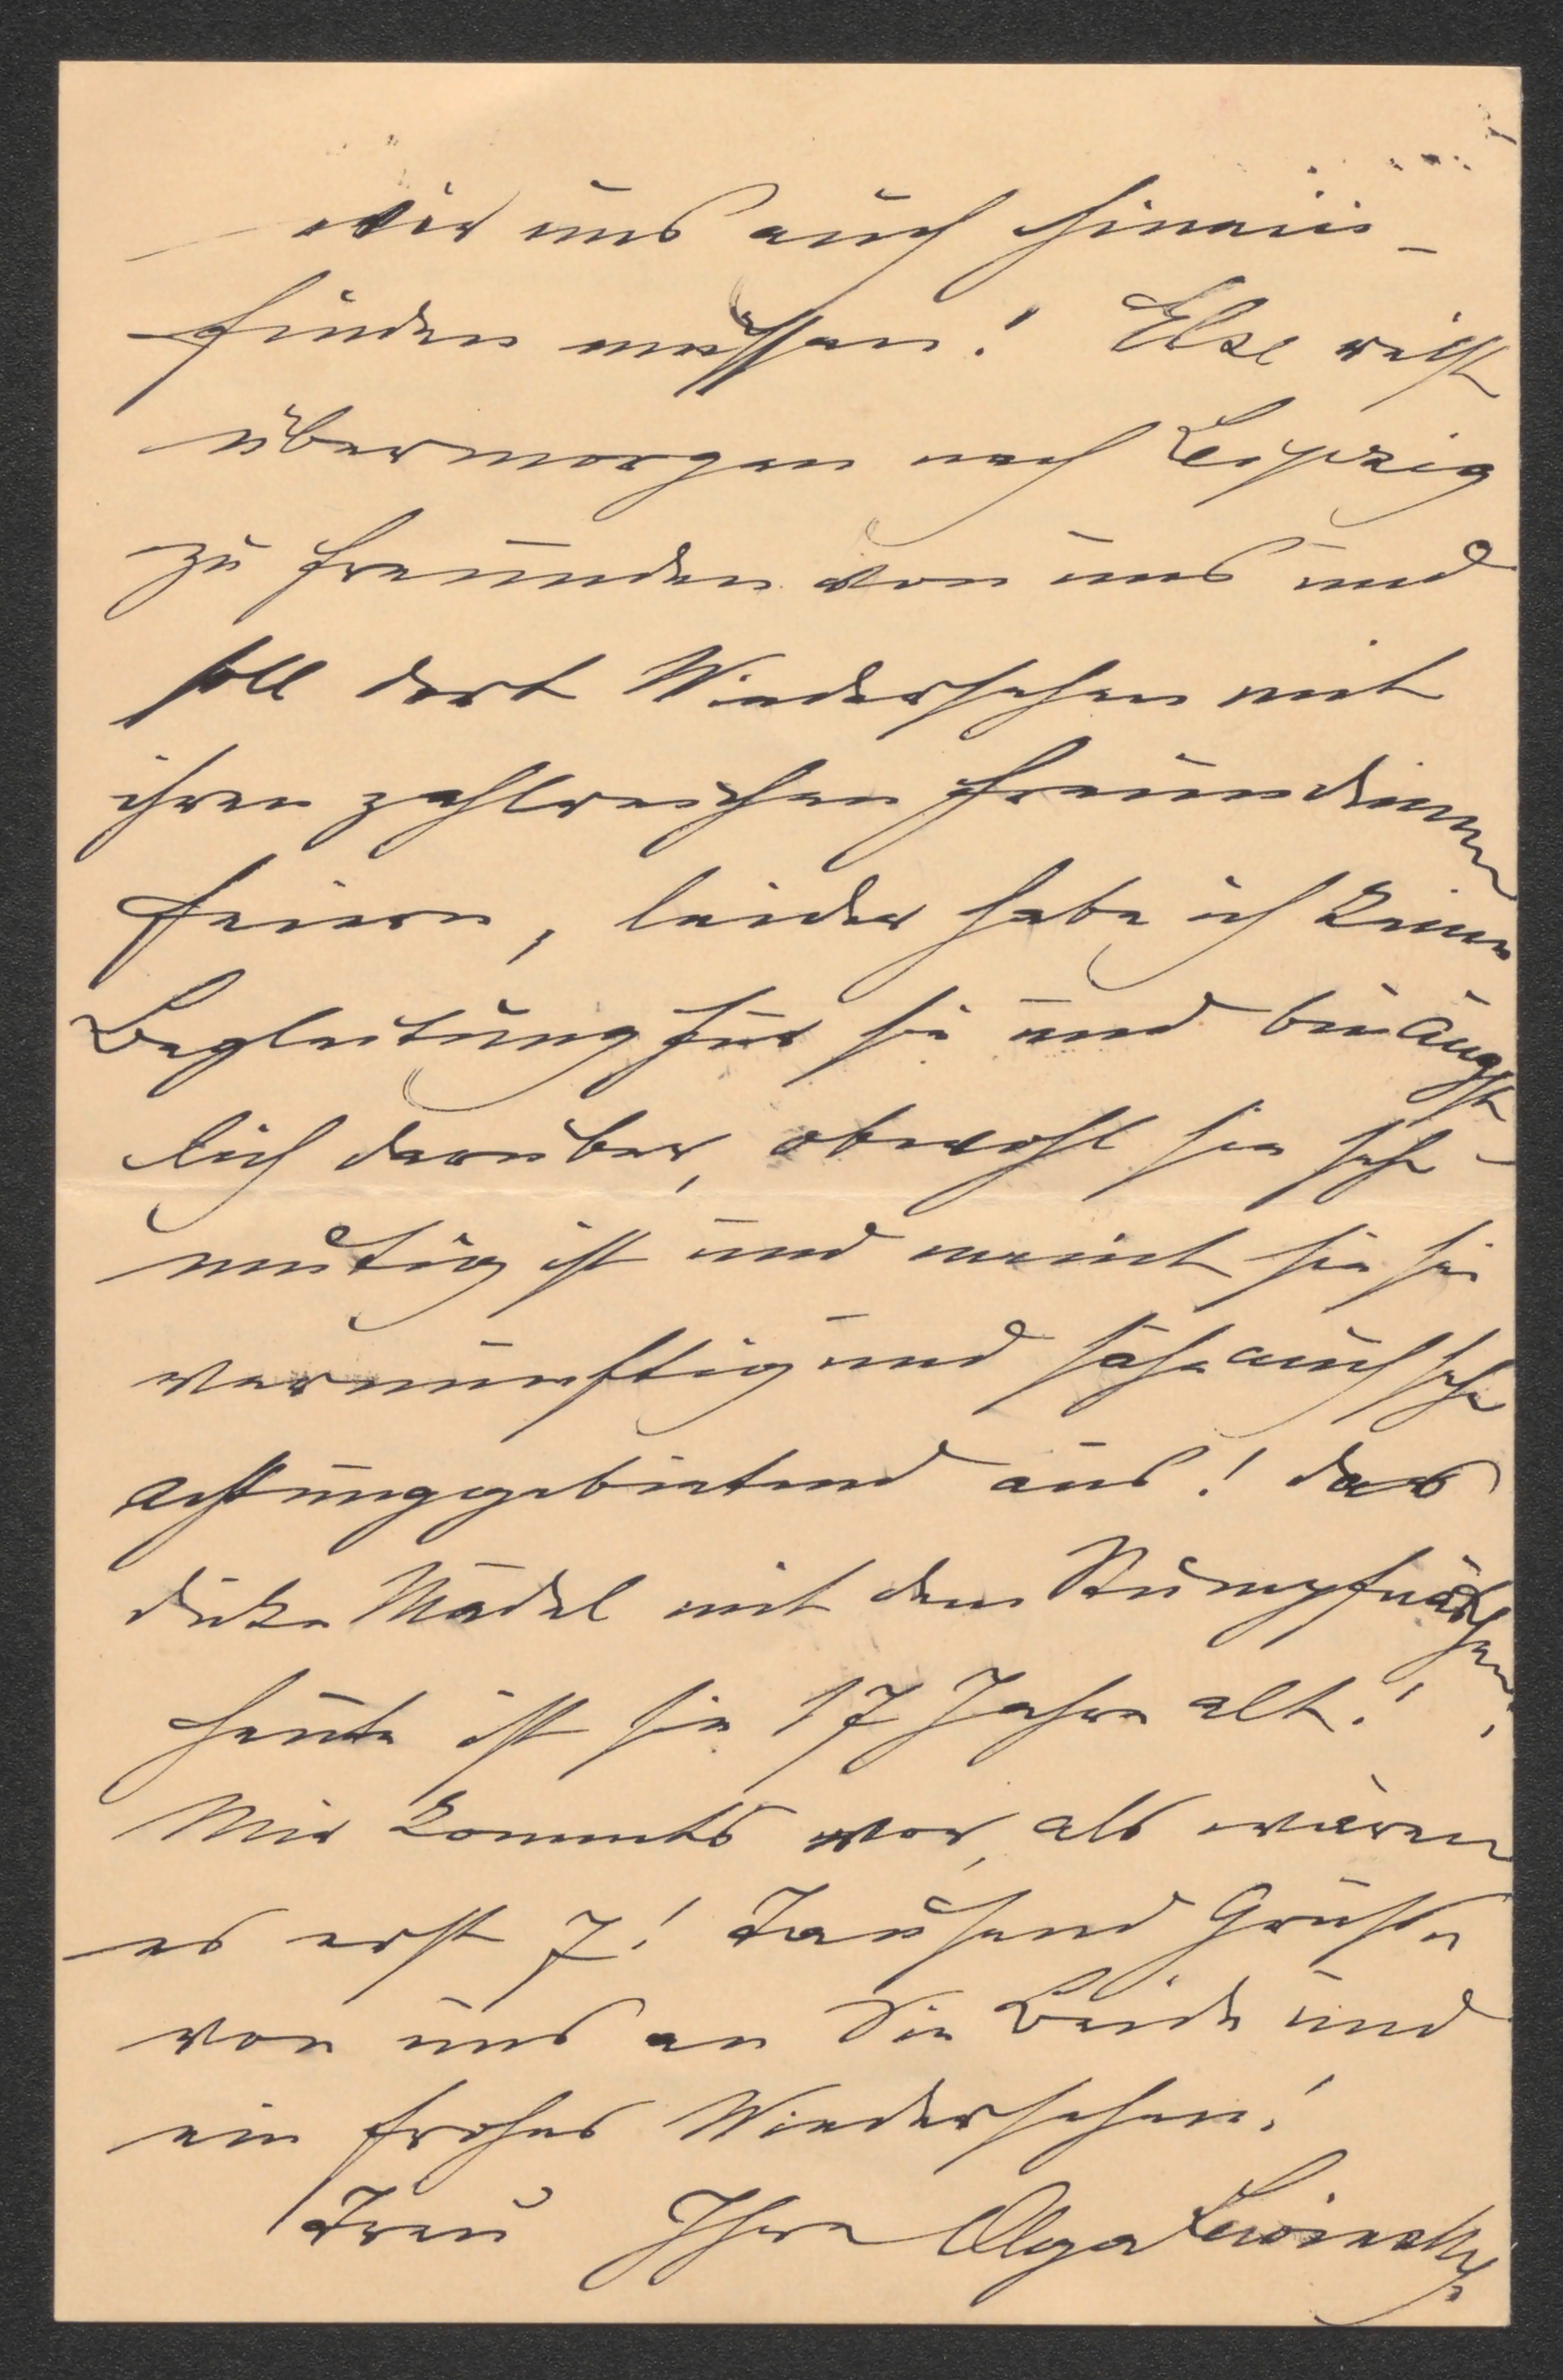 wir uns auch hinein-
finden müssen! Else reist
übermorgen nach Leipzig
zu Freunden von uns und
soll dort Wiedersehen mit
ihren zahlreichen Freundinnen
feiern, leider habe ich keine
Begleitung für sie und bin ängst
lich darüber, obwohl sie sehr
mutig ist und meint sie sei
vernünftig und sähe auch sehr
achtunggebietend aus! das
dicke Mädel mit dem Stumpfnäschen,
heute ist sie 17 Jahre alt!
Mir kommts vor, als wären
es erst 7! Tausend Grüße
von uns an Sie Beide und
ein frohes Wiedersehen!
Treu Ihre Olga Lewinsky